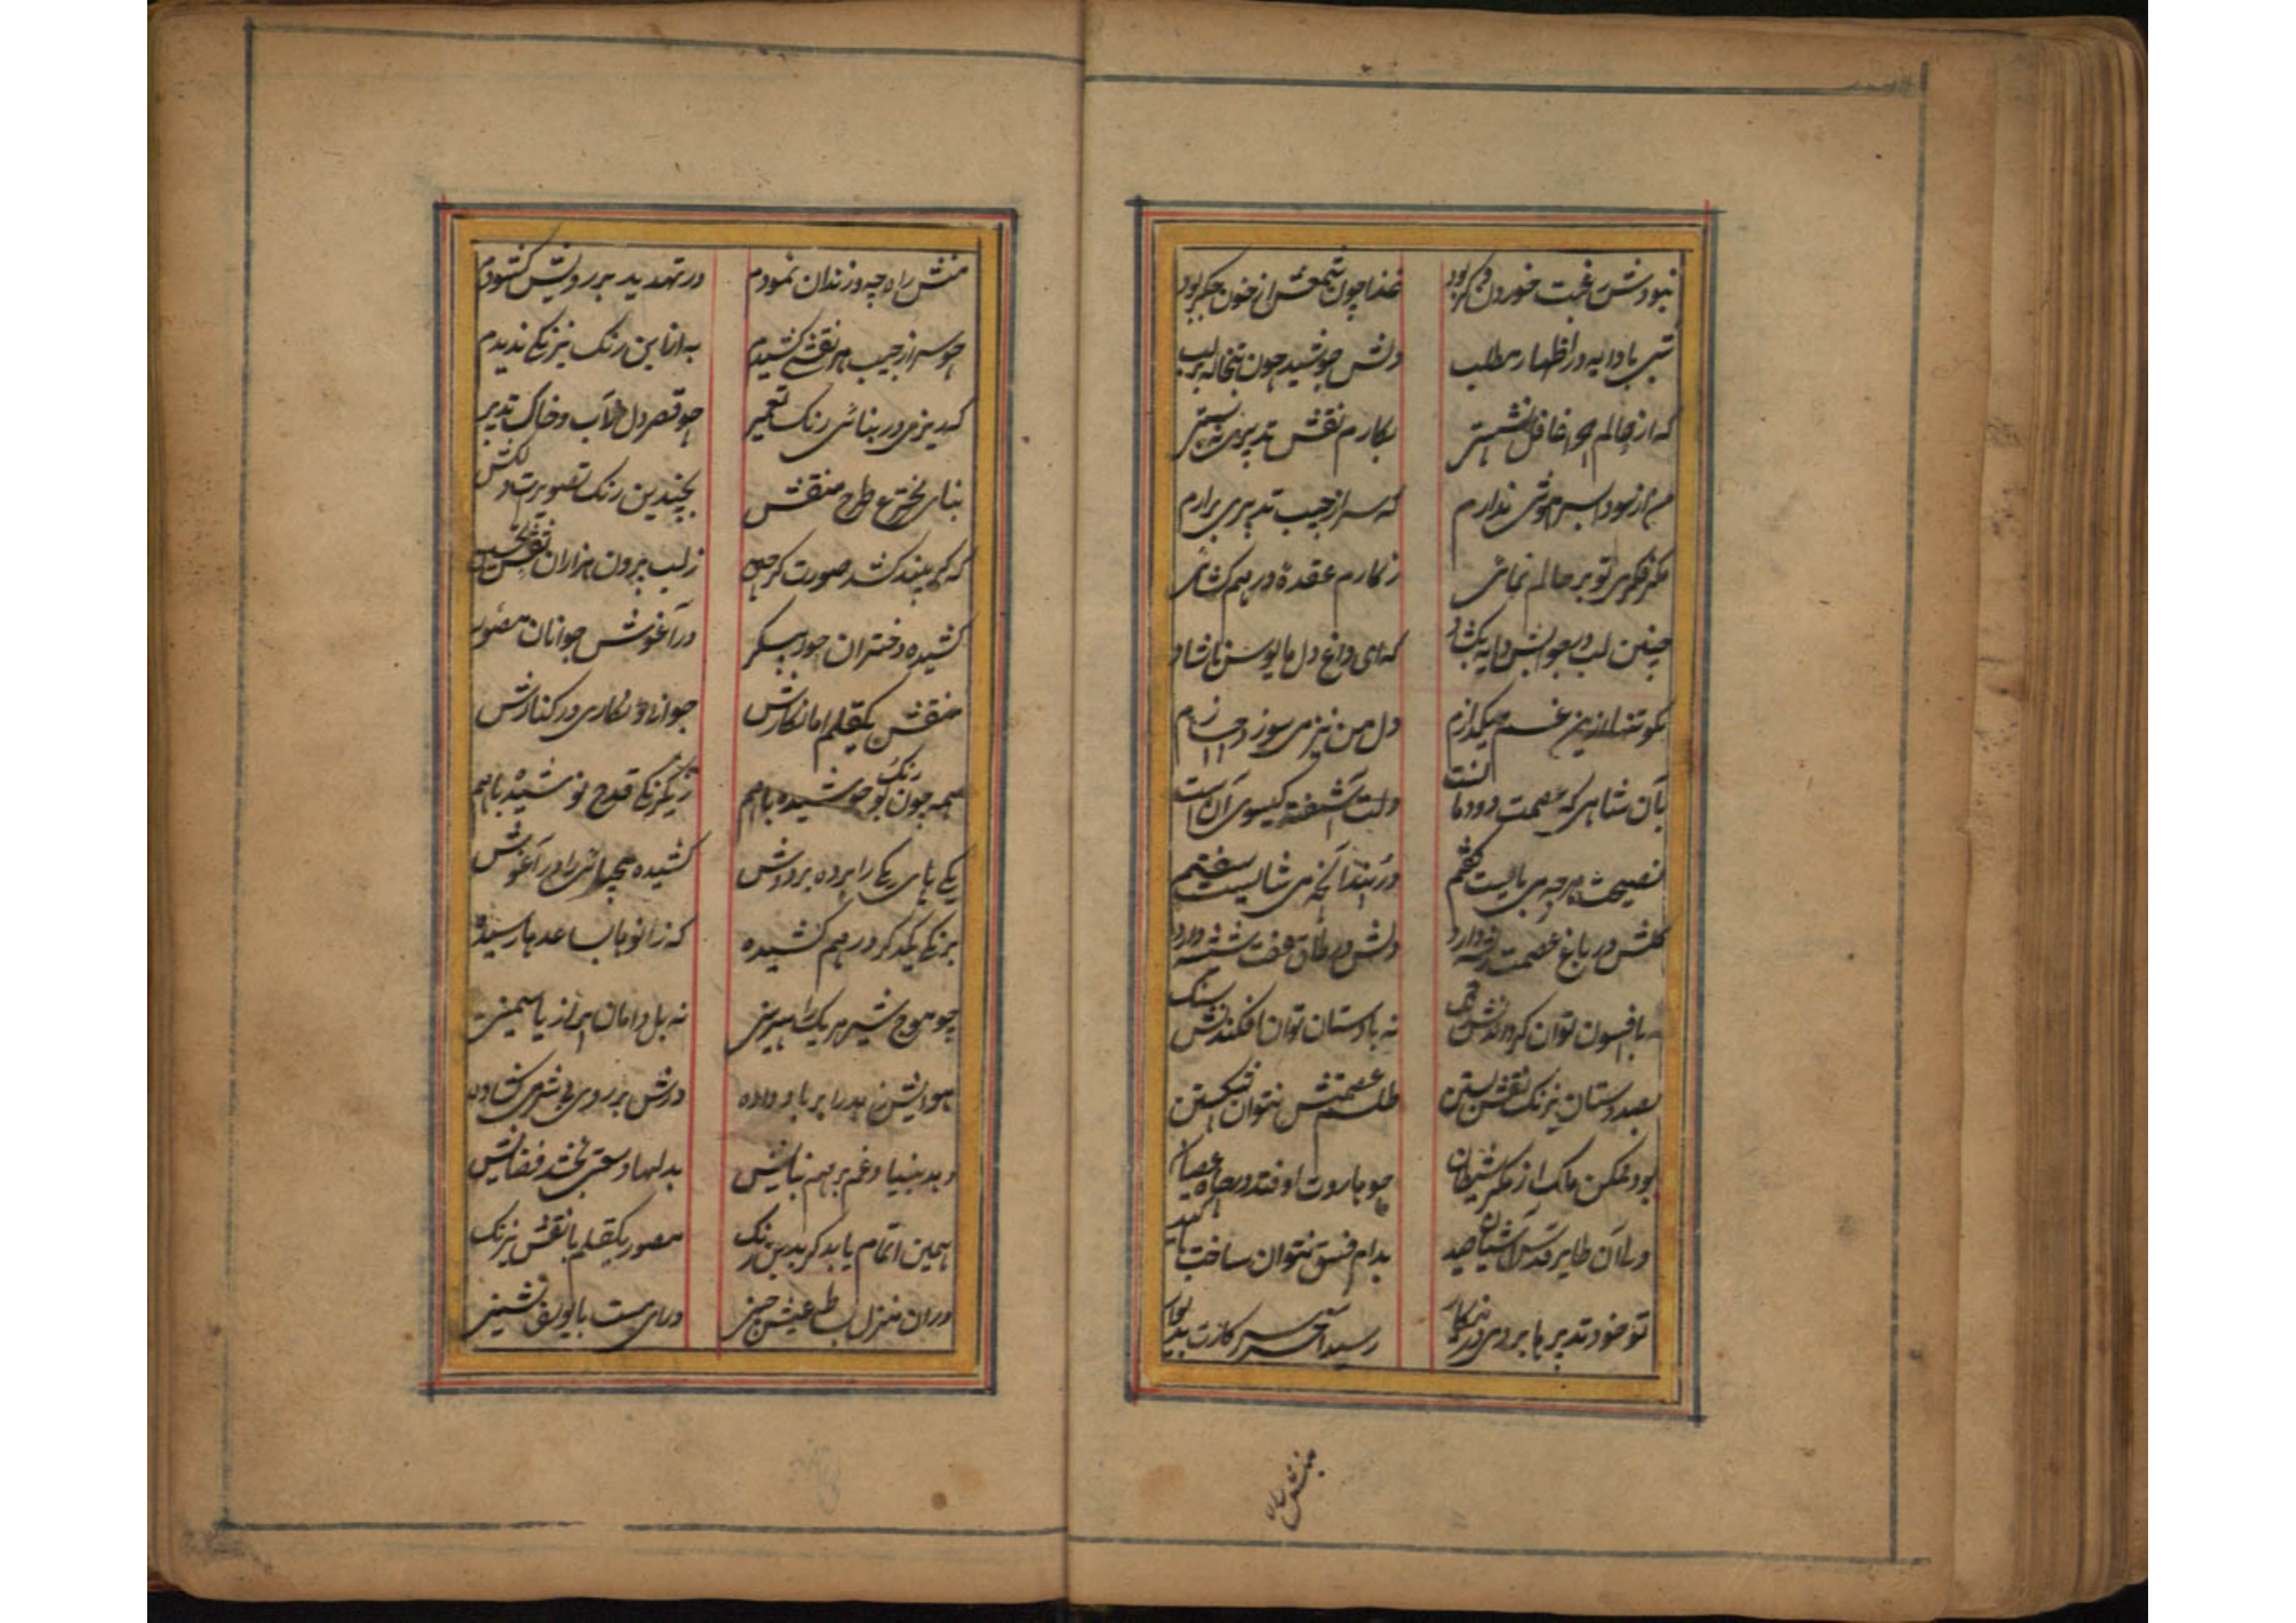 نبودش رغبت خوردن وگر بود غذا چون شمعش از خون جگر بود
شبی با دایه در اظهار مطلب دلش جوشید چون تبخاله بر لب
که از حالم چرا غافل نشستی بکارم نقش تدبیری نه بستی
من از سودا بسر هوشی ندارم که سر از جیب تدبیری برارم
مگر فکری تو بر حالم نمائی ز کارم عقده درهم کشائی
چنین لب در جوابش دایه بکشاد که ای داغ دل مایوس ناشاد
نکو تنها ازین غم میگدازم دل من نیز می سوزد
بآن شاهی که عصمت دودمانست دلت آشفته کیسوی آن است
نصیحت هر چه می بایست گفتم در پند آنچه می شایست سفتم
گلش در باغ عصمت دارد دلش در طاق عفت شیشه دارد
بافسون توان کردن نه بادستان توان افکندنش سنگ
بصد دستان نیرنگ نقش بستن طلسم عصمتش نتوان شکستن
بود ممکن ملک از مکر شیطان چو هاروت اوفتد در چاه عصیان
ولی آن طایر قدس آشیان صید بدام فسق نتوان ساخت با کید
تو خود تدبیر ما بر روی در کار رسید آخر
منش راه
منش راه چه و زندان نمودم در تهدید بر رویش کشودم
چو سر از جیب هر نقشی کشیدم به از این رنگ نیرنگی ندیدم
که ریزی در بنائی رنگ تعمیر چو قصر دل ز آب و خاک تدبیر
بنای مخترع طرح منقش بچندین رنگ تصویرت دلکش
که گر بیند کشد صورت گر چین ز لب بیرون هزاران نقش تحسین
کشیده دختران حور پیکر در آغوش جوانان مصور
منقش یکقلم اما نگارش جوانان و نگاری در کنارش
همه چون بو رنگ جوشیده باهم ز یکرنگی قدح نوشیده باهم
یکی پای یکی را برده بر دوش کشیده همچنانش را در آغوش
برنگی یکدگر درهم کشیده که زانوها بساعدها رسیده
چو موج شیر هر یک را سرینی نه بل دامان پر از یاسمینی
هوایش زهد را بر باد داده درش بر روی بی شرمی کشاده
دهد بنیاد غم برهم بنایش بدلها وسعتی بخشد فضایش
همین اتمام یابد گر بدین رنگ مصور یکقلم با نقش نیرنگ
دران منزل بساط عیش چینی در بایوسف نشینی